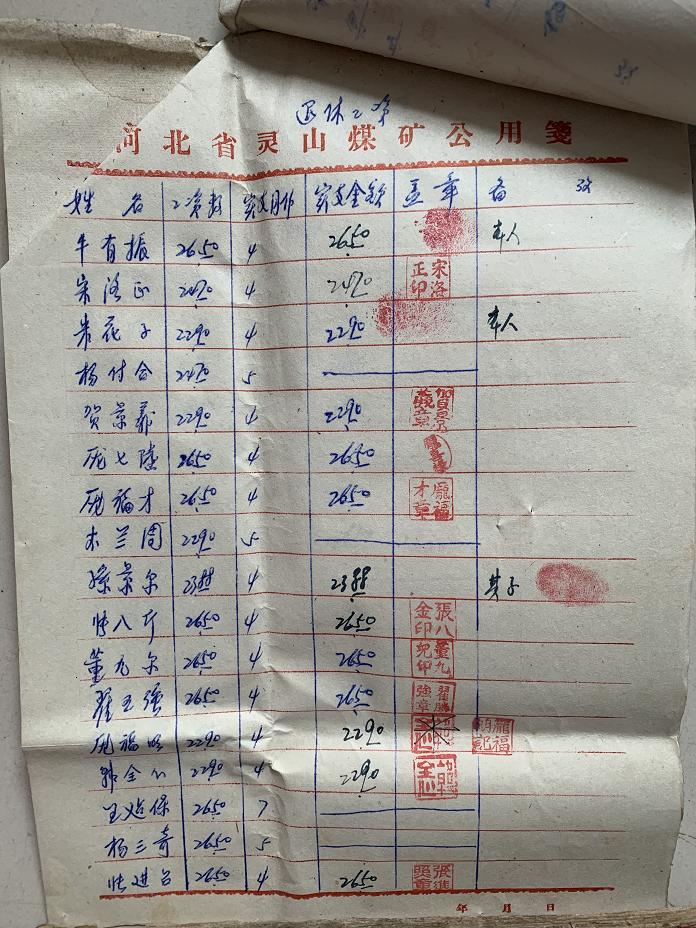 退休工资
河北省灵山煤矿公用笺
姓名 工资数 实支月份 实支金额 盖章 备考
牛有振 2650 4 2650 本人
宋洛正 2470 4 2470 宋洛正印
朱花子 2290 4 2290 本人
杨付合 2470 5
贺景义 2290 4 2290
庞七陆 2650 4 2650
庞福才 2650 4 2650 龐福才章
兰周 2290 5
景尔 2388 4 2388 其子
张八斤 2650 4 2650 張八金印
董九尔 2650 4 2650 董九兒印
翟玉强 2650 4 2650
庞福明 2290 4 2290
韩全 2290 4 2290
王 保 2650 7
杨三奇 2650 5
张进 2650 4 2650
年 月 日